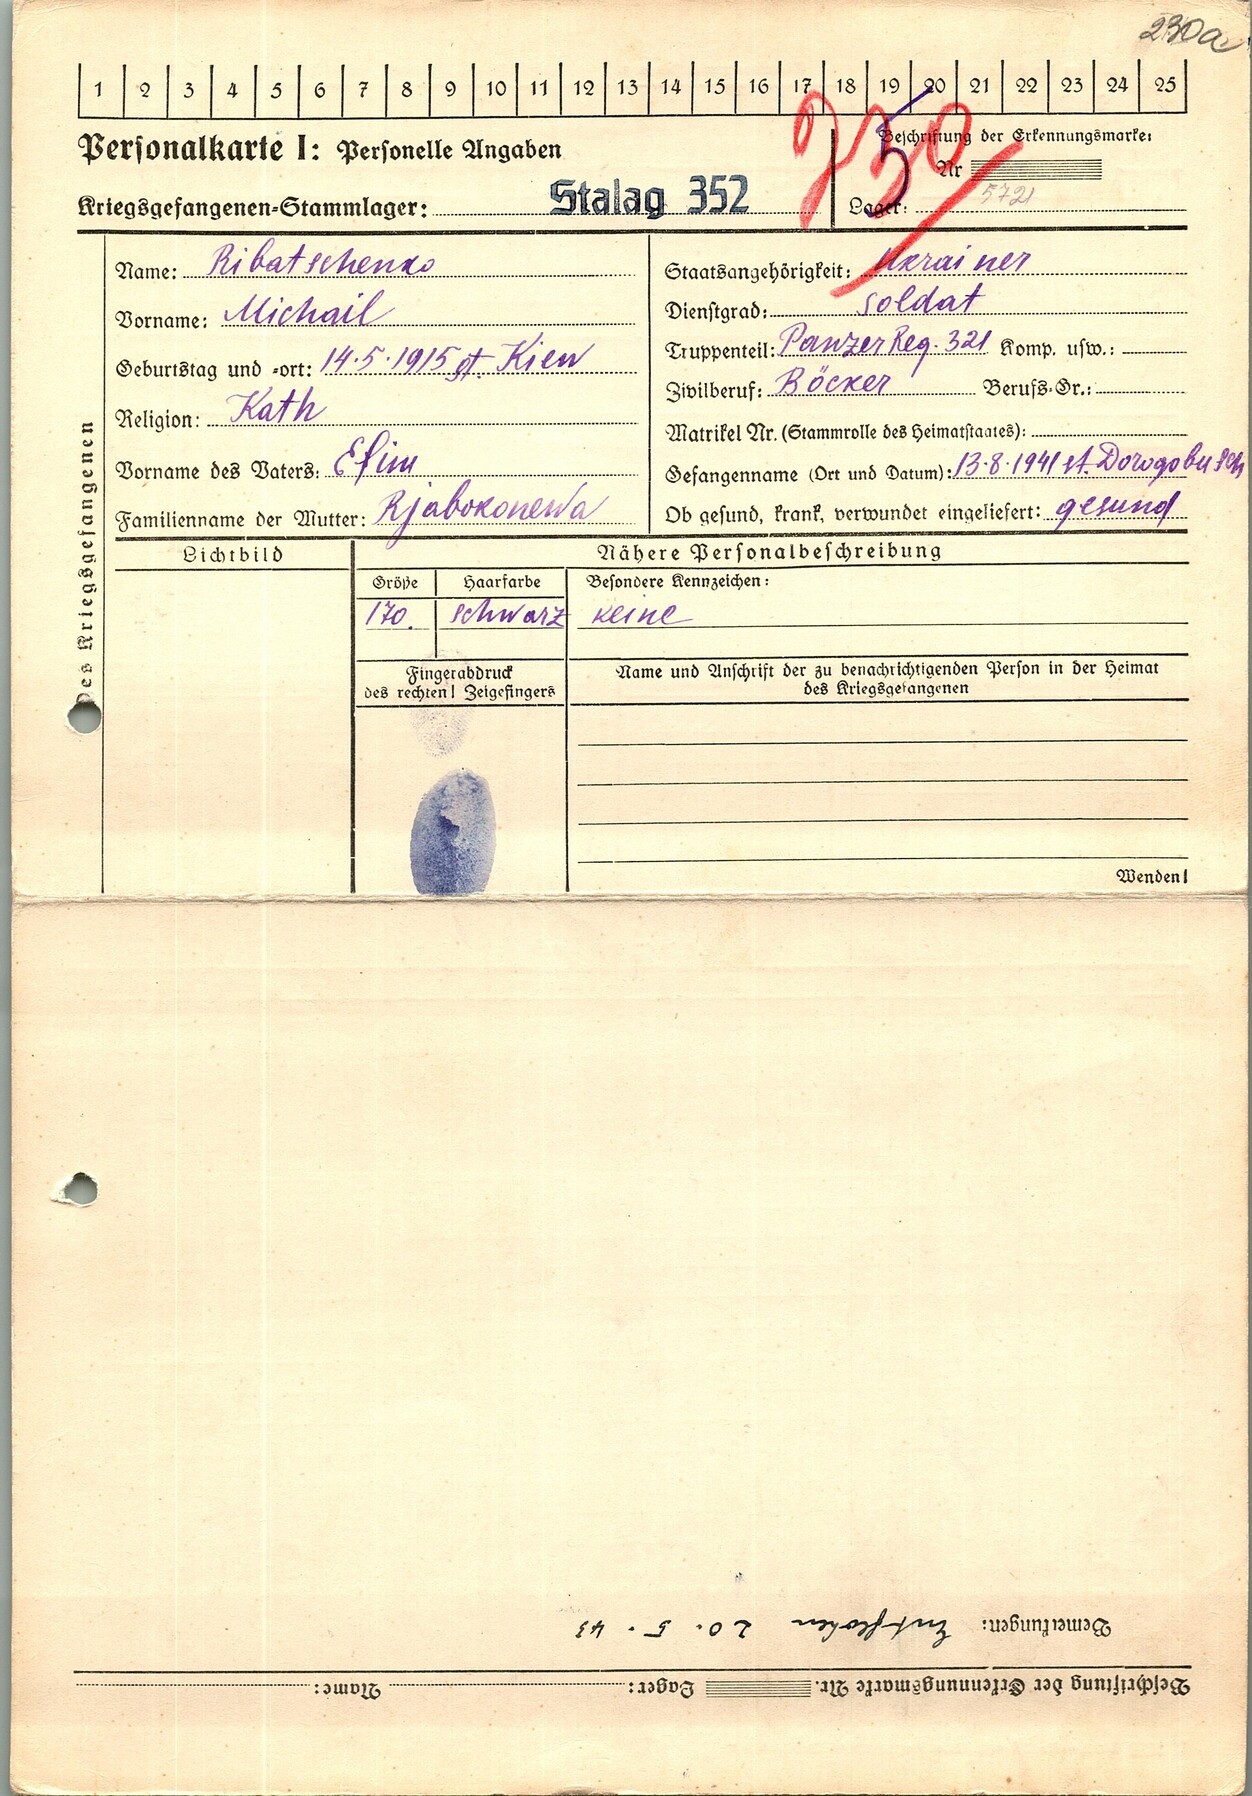 230a
1 2 3 4 5 6 7 8 9 10 11 12 13 14 15 16 17 18 19 20 21 22 23 24 25
Personalkarte I: Personelle Angaben
Beschriftung der Erkennungsmarke:
Nr
Kriegsgefangenen-Stammlager: Stalag 352
Lager: 5721
des Kriegsgefangenen
Name: Ribatschenko
Vorname: Michail
Geburtstag und -ort: 14.5.1915 st. Kiew
Religion: Kath
Vorname des Vaters: Efim
Familienname der Mutter: Rjabokonewa
Staatsangehörigkeit: Ukrainer
Dienstgrad: Soldat
Truppenteil: Panzer Reg. 321 Komp. usw.:
Zivilberuf: Böcker Berufs-Gr.:
Matrikel Nr. (Stammrolle des Heimatstaates):
Gefangenname (Ort und Datum): 13.8.1941 st. Dorogobusch
Ob gesund, krank, verwundet eingeliefert: gesund
Lichtbild
Nähere Personalbeschreibung
Größe Haarfarbe Besondere Kennzeichen:
170. schwarz keine
Fingerabdruck
des rechten! Zeigefingers
Name und Anschrift der zu benachrichtigenden Person in der Heimat
des Kriegsgefangenen
Wenden!
Bemerkungen: Entflohen 20.5.43
Beschriftung der Erkennungsmarke Nr. Lager: Name: